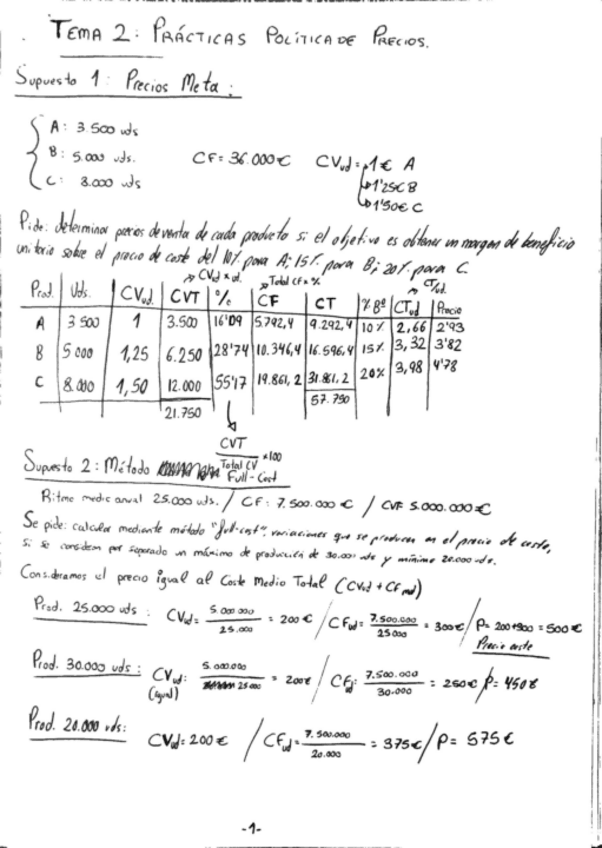 TEMA 2: PRÁCTICAS POLÍTICA DE PRECIOS.
Supuesto 1: Precios Meta:
A: 3.500 uds
B: 5.000 uds.
C: 8.000 uds
CF = 36.000 € CVud = 1€ A
1'25€ B
1'50€ C
Pide: determinar precios de venta de cada producto si el objetivo es obtener un margen de beneficio
unitario sobre el precio de coste del 10% para A; 15% para B; 20% para C.
CVud x ud. Total CF x % CTud.
Prod. Uds. CVud. CVT % CF CT % Bº CTud Precio
A 3 500 1 3.500 16'09 5.792,4 9.292,4 10% 2,66 2'93
B 5 000 1,25 6.250 28'74 10.346,4 16.596,4 15% 3,32 3'82
C 8.000 1,50 12.000 55'17 19.861,2 31.861,2 20% 3,98 4'78
21.750 57.750
CVT / Total CV x100
Supuesto 2: Método Full-Cost
Ritmo medic anual 25.000 uds. / CF: 7.500.000 € / CVF 5.000.000 €
Se pide: calcular mediante método "full-cost", variaciones que se producen en el precio de coste,
si se consideran por separado un máximo de producción de 30.000 uds y mínimo 20.000 uds.
Consideramos el precio igual al Coste Medio Total (CVud + CFud)
Prod. 25.000 uds: CVud = 5.000.000 / 25.000 = 200 € / CFud = 7.500.000 / 25000 = 300€ / P = 200+300 = 500 €
Precio coste
Prod. 30.000 uds: CVud: 5.000.000 / 25.000 = 200€ / CFud: 7.500.000 / 30.000 = 250€ / P = 450€
(igual)
Prod. 20.000 uds: CVud = 200 € / CFud = 7.500.000 / 20.000 = 375€ / P = 575 €
-1-